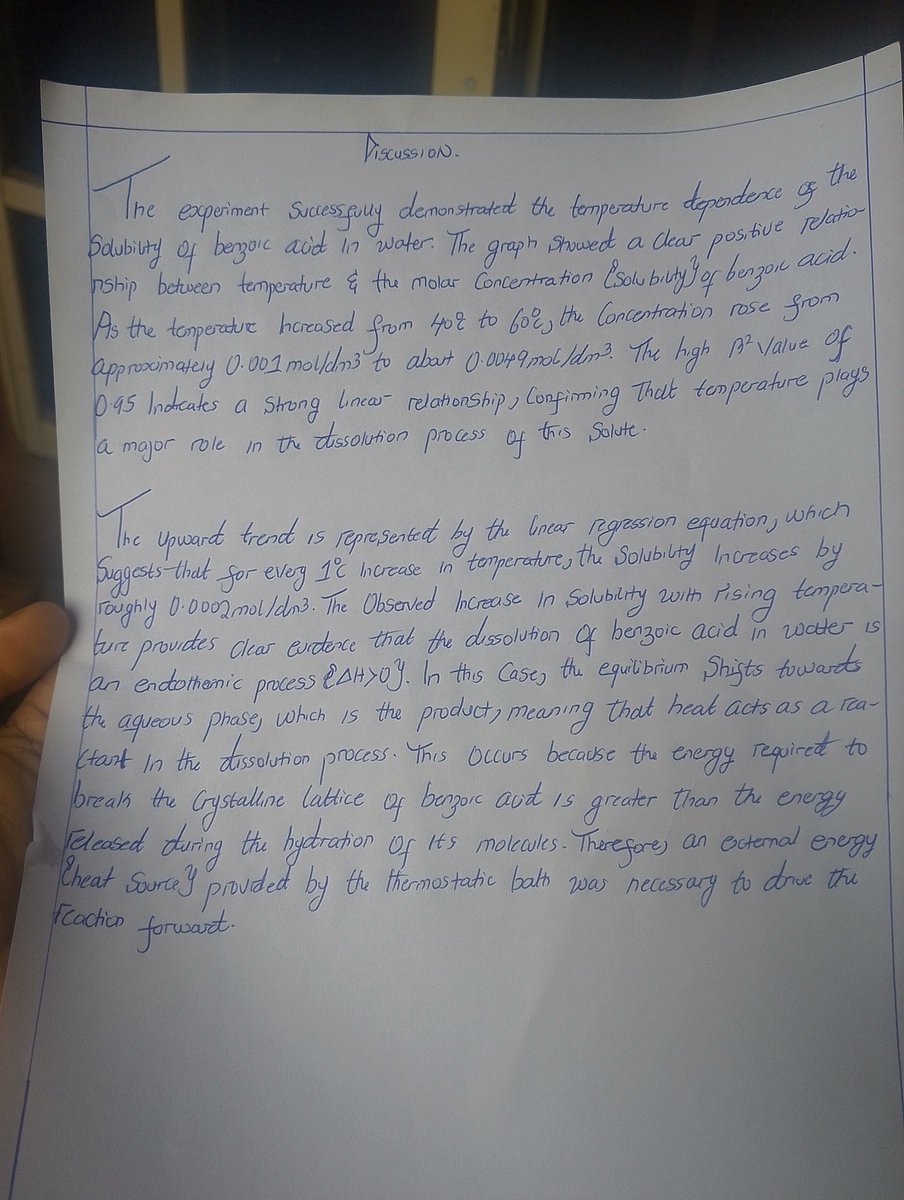 Discussion.
The experiment successfully demonstrated the temperature dependence of the
Solubility of benzoic acid in water. The graph showed a clear positive relatio-
nship between temperature & the molar Concentration {Solubility} of benzoic acid.
As the temperature Increased from 40°C to 60°C, the Concentration rose from
approximately 0.001 mol/dm³ to about 0.0049 mol/dm³. The high R² Value of
0.95 Indicates a Strong linear relationship, Confirming That temperature plays
a major role in the dissolution process of this Solute.
The upward trend is represented by the linear regression equation, which
Suggests that for every 1°C Increase in temperature, the Solubility Increases by
roughly 0.0002 mol/dm3. The Observed Increase In Solubility with rising tempera-
ture provides clear evidence that the dissolution Of benzoic acid in water is
an endothemic process {ΔH>0}. In this Case, the equilibrium Shifts towards
the aqueous phase, which is the product, meaning that heat acts as a rea-
ctant In the dissolution process. This Occurs because the energy required to
break the Crystalline lattice Of benzoic acid is greater than the energy
released during the hydration Of Its molecules. Therefore, an external energy
{heat Source} provided by the thermostatic bath was necessary to drive the
reaction forward.